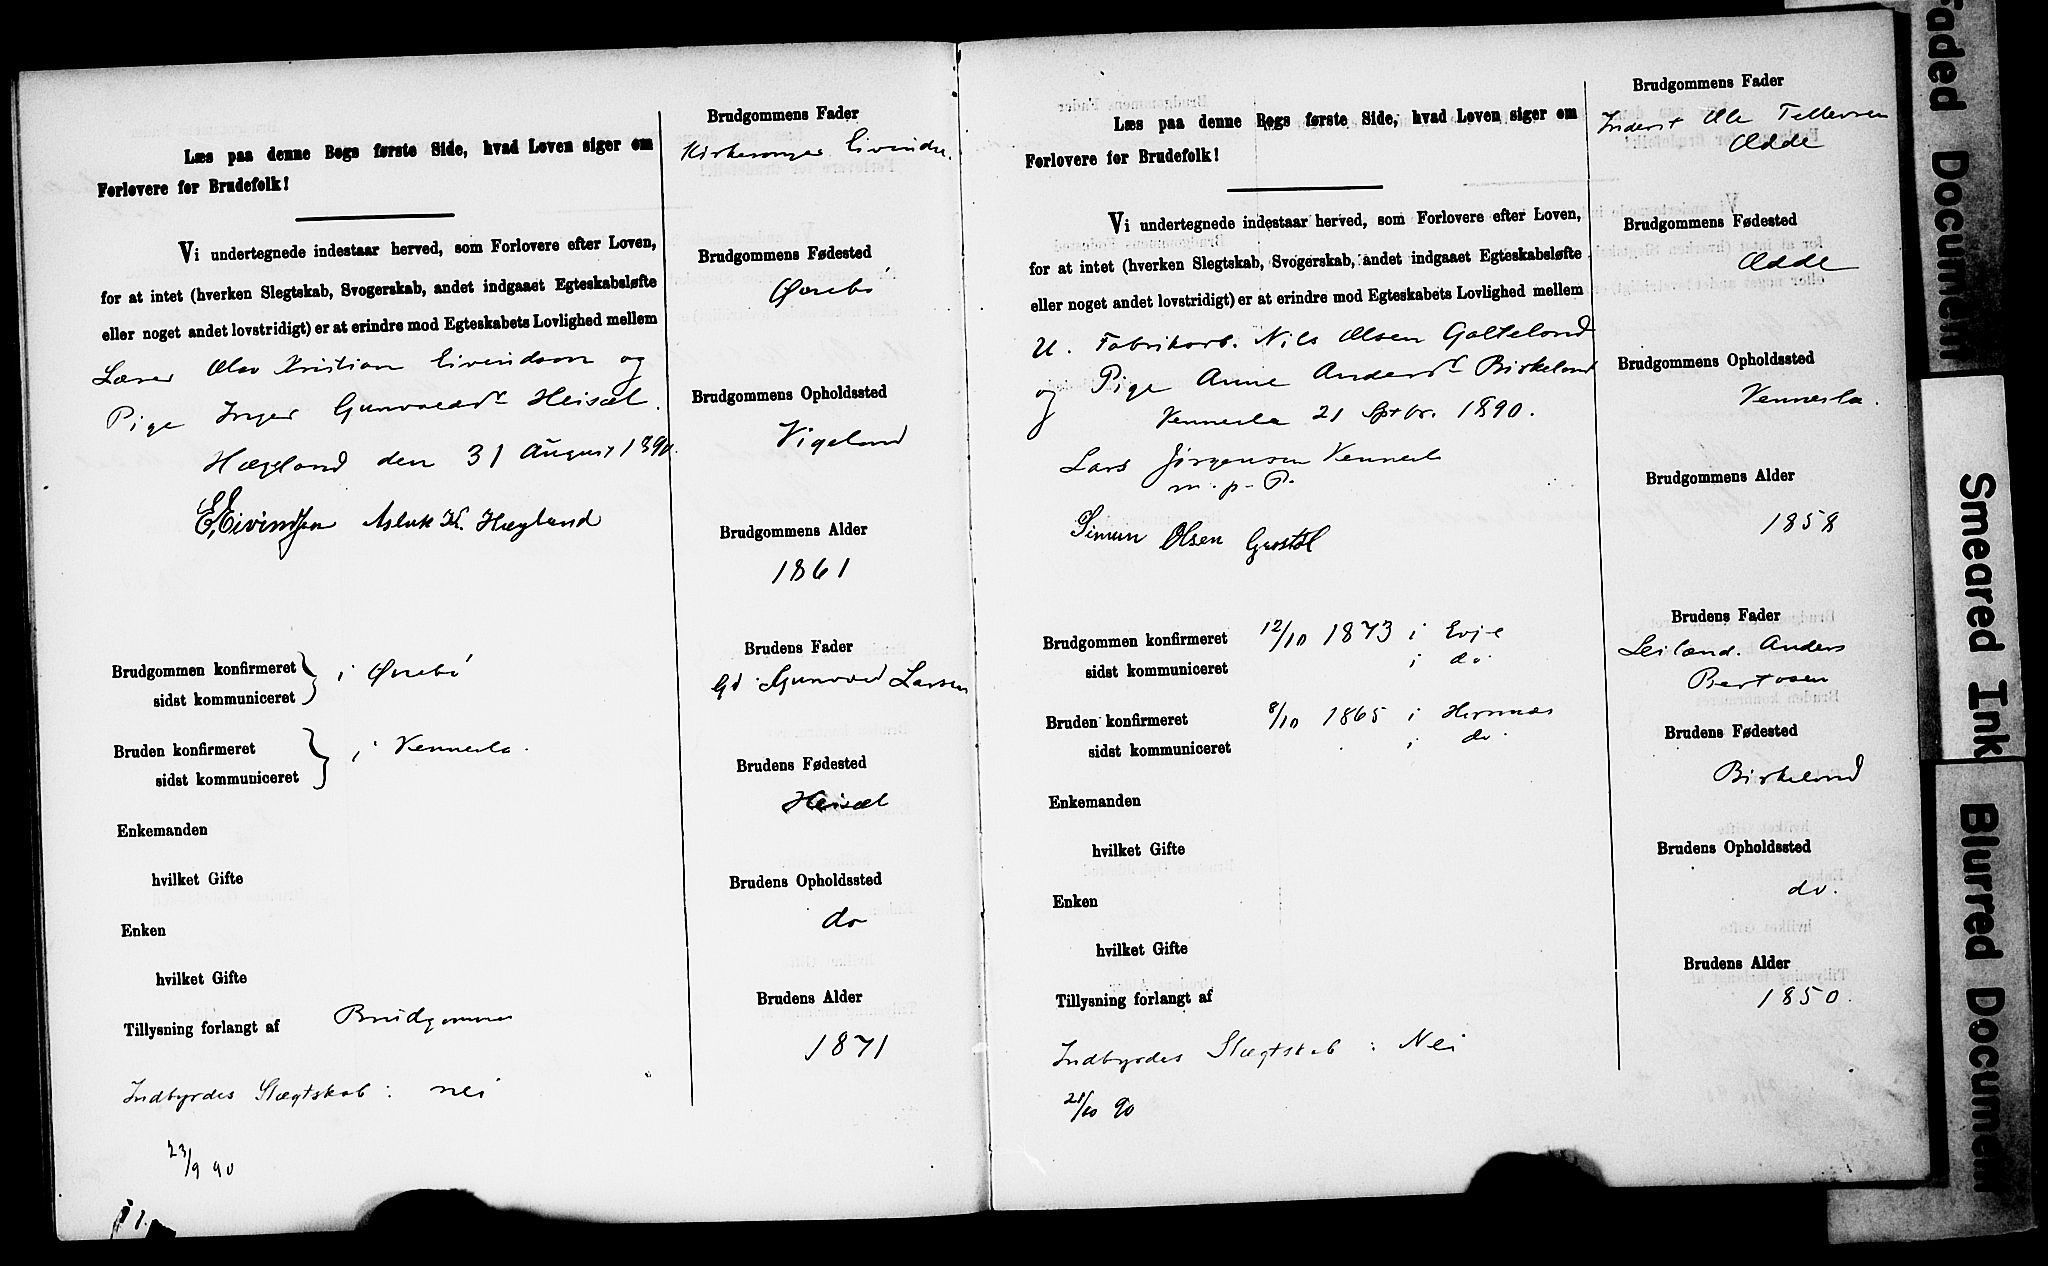 Læs paa denne Bogs første Side, hvad Loven siger om
Forlovere for Brudefolk!
Vi undertegnede indestaar herved, som Forlovere efter Loven,
for at intet (hverken Slegtskab, Svogerskab, andet indgaaet Egteskabsløfte
eller noget andet lovstridigt) er at erindre mod Egteskabets Lovlighed mellem
Lærer Olav Kristian Eivindson og
Pige Inger Gunvaldsdt Heisæl.
Hægeland den 31 August 1890.
E. Eivindsen Aslak K. Hægland
Brudgommen konfirmeret
sidst kommuniceret
i Øvrebø
Bruden konfirmeret
sidst kommuniceret
i Vennesla.
Enkemanden
hvilket Gifte
Enken
hvilket Gifte
Tillysning forlangt af Brudgommen
Indbyrdes Slægtskab: nei
23/9 90
Brudgommens Fader
Kirkesanger Eivindsen
Brudgommens Fødested
Øvrebø
Brudgommens Opholdssted
Vigeland
Brudgommens Alder
1861
Brudens Fader
Gd. Gunvald Larsen
Brudens Fødested
Heisæl
Brudens Opholdssted
do
Brudens Alder
1871
Læs paa denne Bogs første Side, hvad Loven siger om
Forlovere for Brudefolk!
Vi undertegnede indestaar herved, som Forlovere efter Loven,
for at intet (hverken Slegtskab, Svogerskab, andet indgaaet Egteskabsløfte
eller noget andet lovstridigt) er at erindre mod Egteskabets Lovlighed mellem
U. Fabrikarb. Nils Olsen Galteland
og Pige Anne Andersdt Birkeland
Vennesla 21 Sptbr. 1890.
Lars Jørgensen Vennesla
m. p. P.
Simun Olsen
Brudgommen konfirmeret 12/10 1873 i Evje
sidst kommuniceret i do.
Bruden konfirmeret 8/10 1865 i Hornnæs
sidst kommuniceret i do.
Enkemanden
hvilket Gifte
Enken
hvilket Gifte
Tillysning forlangt af
Indbyrdes Slægtskab: Nei
21/10 90
Brudgommens Fader
Inderst Ole Tellevsen
Odde
Brudgommens Fødested
Odde
Brudgommens Opholdssted
Vennesla.
Brudgommens Alder
1858
Brudens Fader
Leilænd. Anders
Brudens Fødested
Birkeland
Brudens Opholdssted
do.
Brudens Alder
1850.
Faded Document
Smeared Ink
Blurred Document